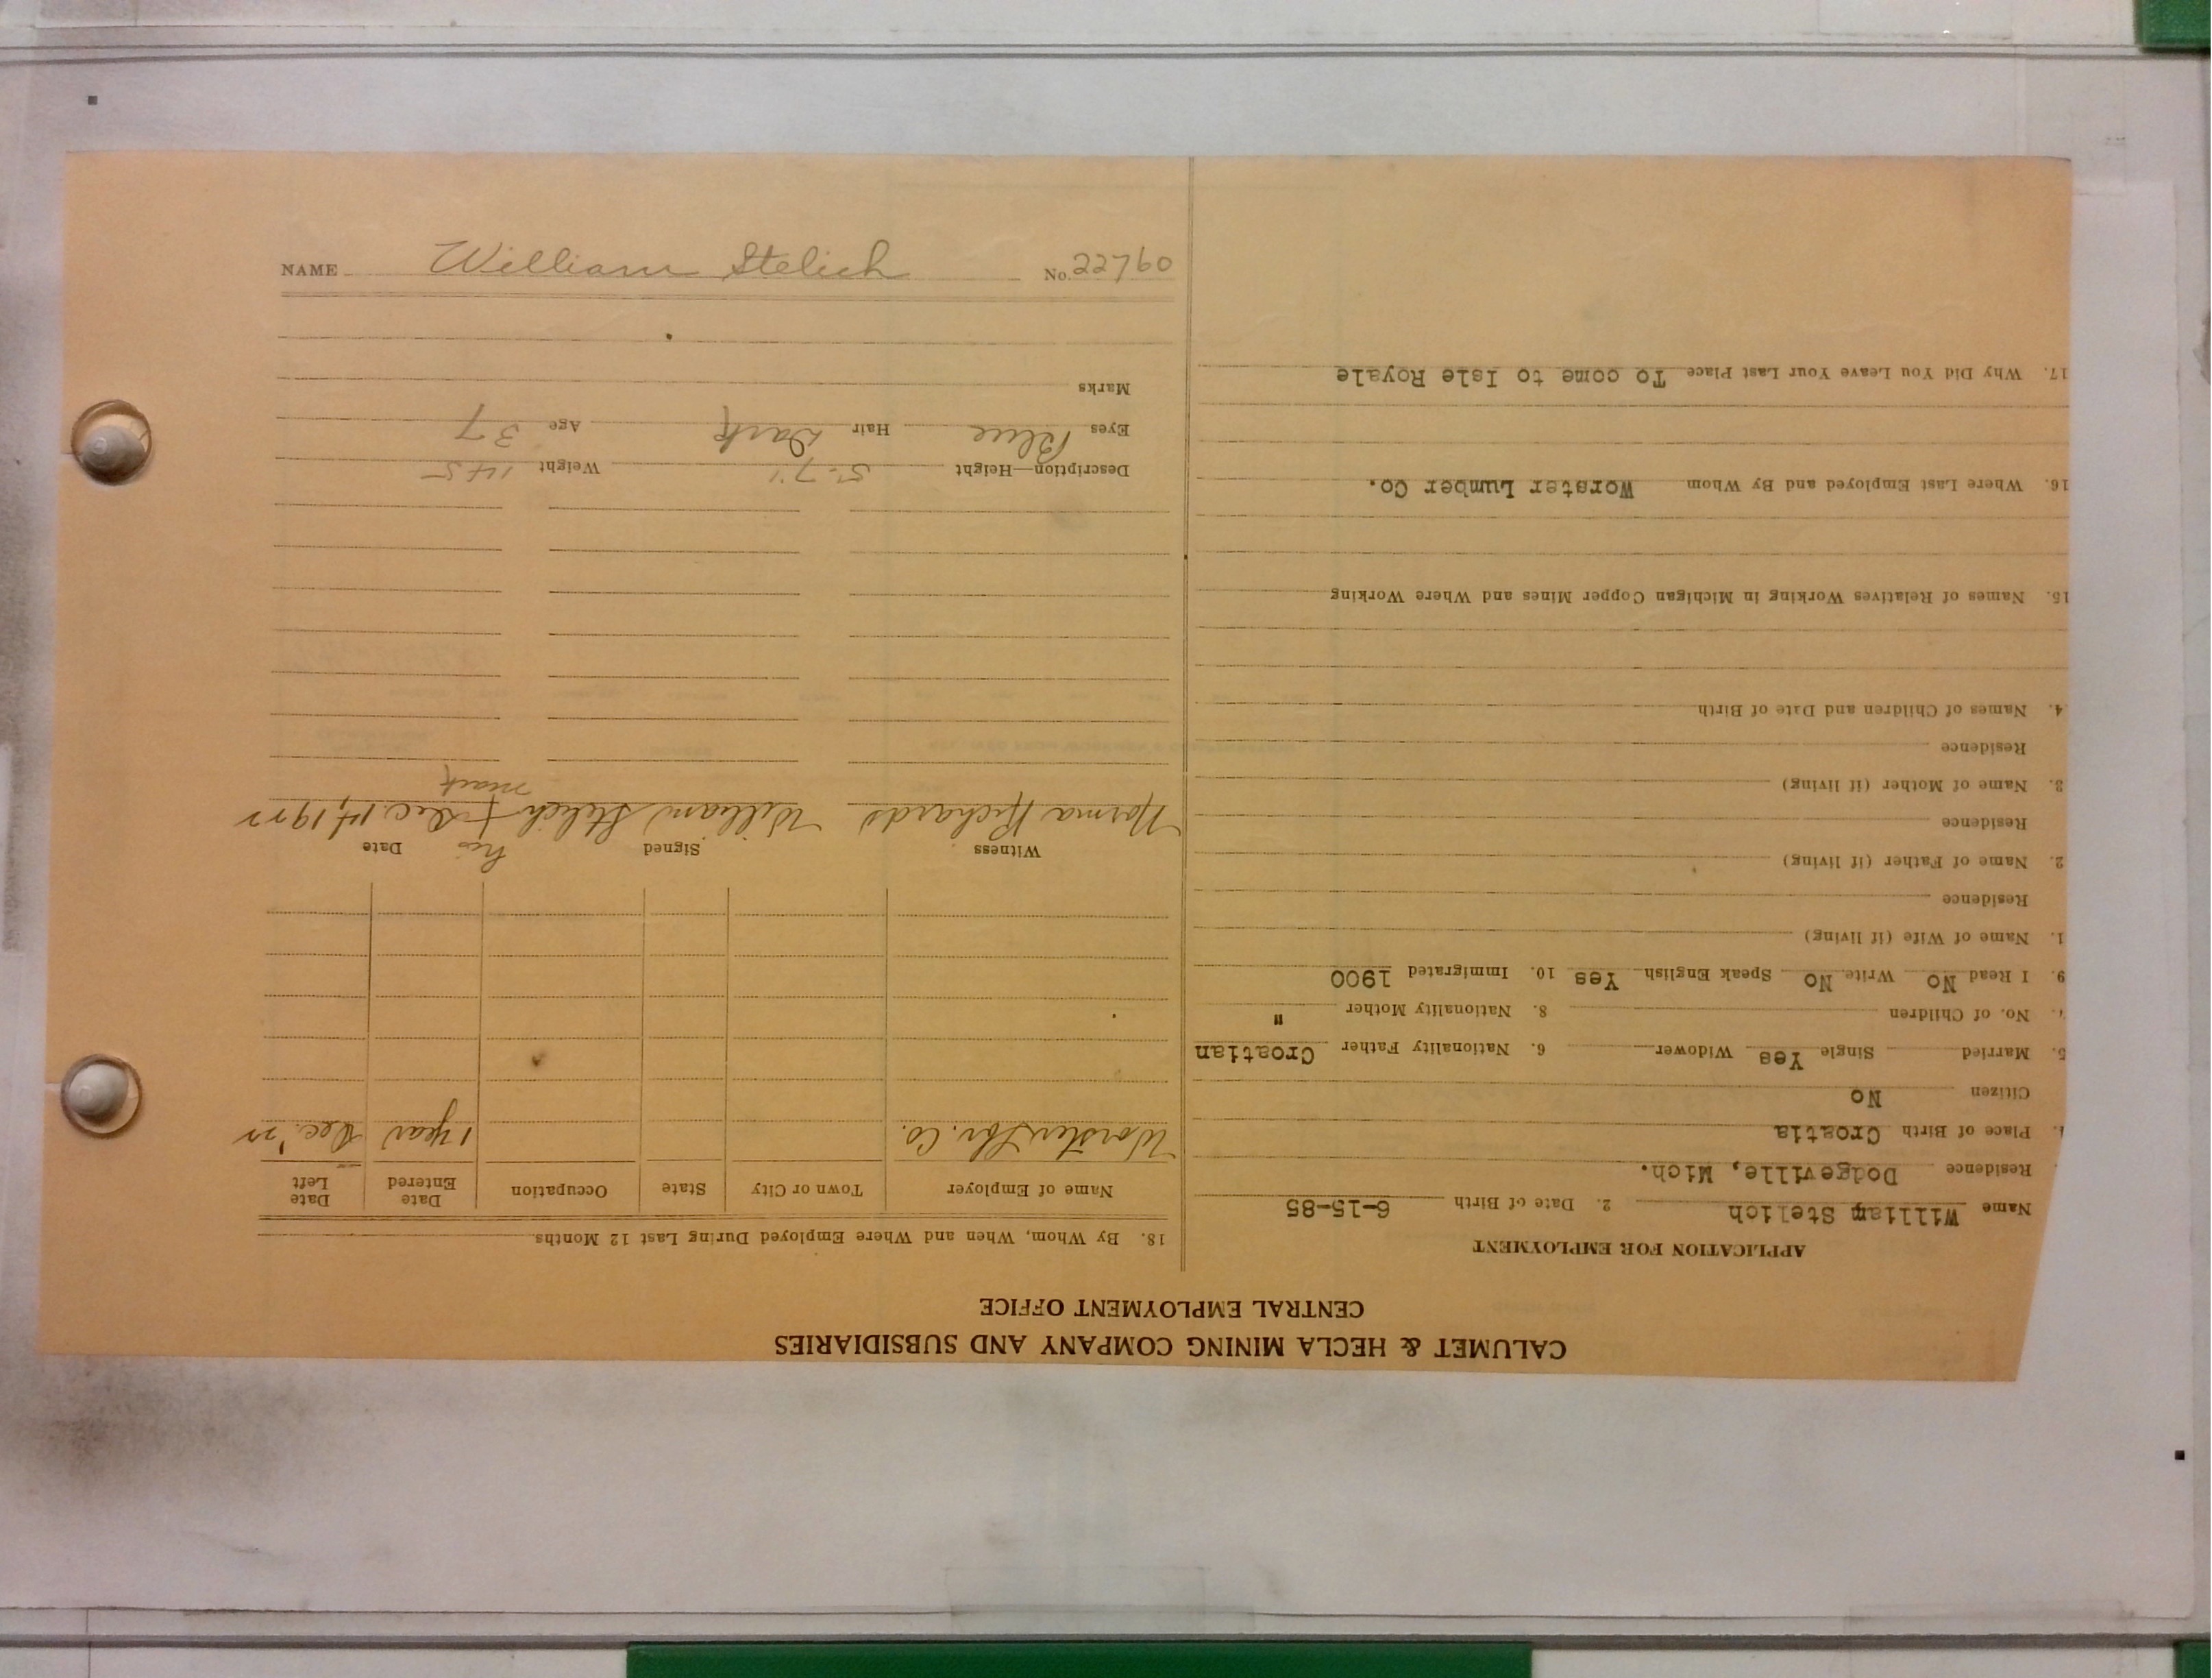 CALUMET & HECLA MINING COMPANY AND SUBSIDIARIES
CENTRAL EMPLOYMENT OFFICE
APPLICATION FOR EMPLOYMENT
Name William Stelich 2. Date of Birth 6-15-85
Residence Dodgeville, Mich.
4. Place of Birth Croatia
Citizen No
5. Married Single Yes Widower 6. Nationality Father Croatian
7. No. of Children 8. Nationality Mother "
9. I Read No Write No Speak English Yes 10. Immigrated 1900
1. Name of Wife (if living)
Residence
2. Name of Father (if living)
Residence
3. Name of Mother (if living)
Residence
4. Names of Children and Date of Birth
15. Names of Relatives Working in Michigan Copper Mines and Where Working
16. Where Last Employed and By Whom Worster Lumber Co.
17. Why Did You Leave Your Last Place To come to Isle Royale
18. By Whom, When and Where Employed During Last 12 Months
Name of Employer Town or City State Occupation Date Entered Date Left
Worster Lbr. Co. 1 year Dec. '22
Witness Signed his Date
Norma Richards William Stelich + Dec. 14, 1922
mark
Description—Height 5-7" Weight 145
Eyes Blue Hair Dark Age 37
Marks
NAME William Stelich No. 22760